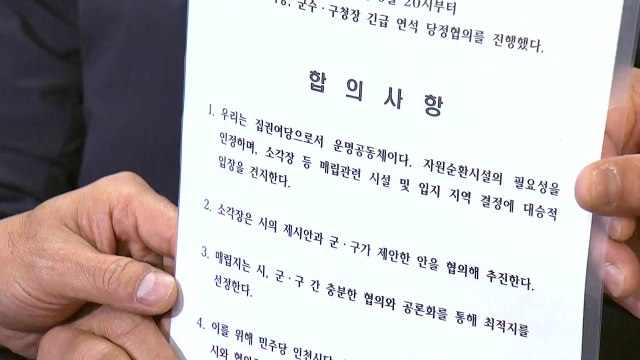 20시부터
군수·구청장 긴급 연석 당정협의를 진행했다.
합 의 사 항
1. 우리는 집권여당으로서 운명공동체이다. 자원순환시설의 필요성을
인정하며, 소각장 등 매립관련 시설 및 입지 지역 결정에 대승적
입장을 견지한다.
2. 소각장은 시의 제시안과 군·구가 제안한 안을 협의해 추진한다.
3. 매립지는 시, 군·구 간 충분한 협의와 공론화를 통해 최적지를
선정한다.
4. 이를 위해 민주당 인천시당
시와 협의